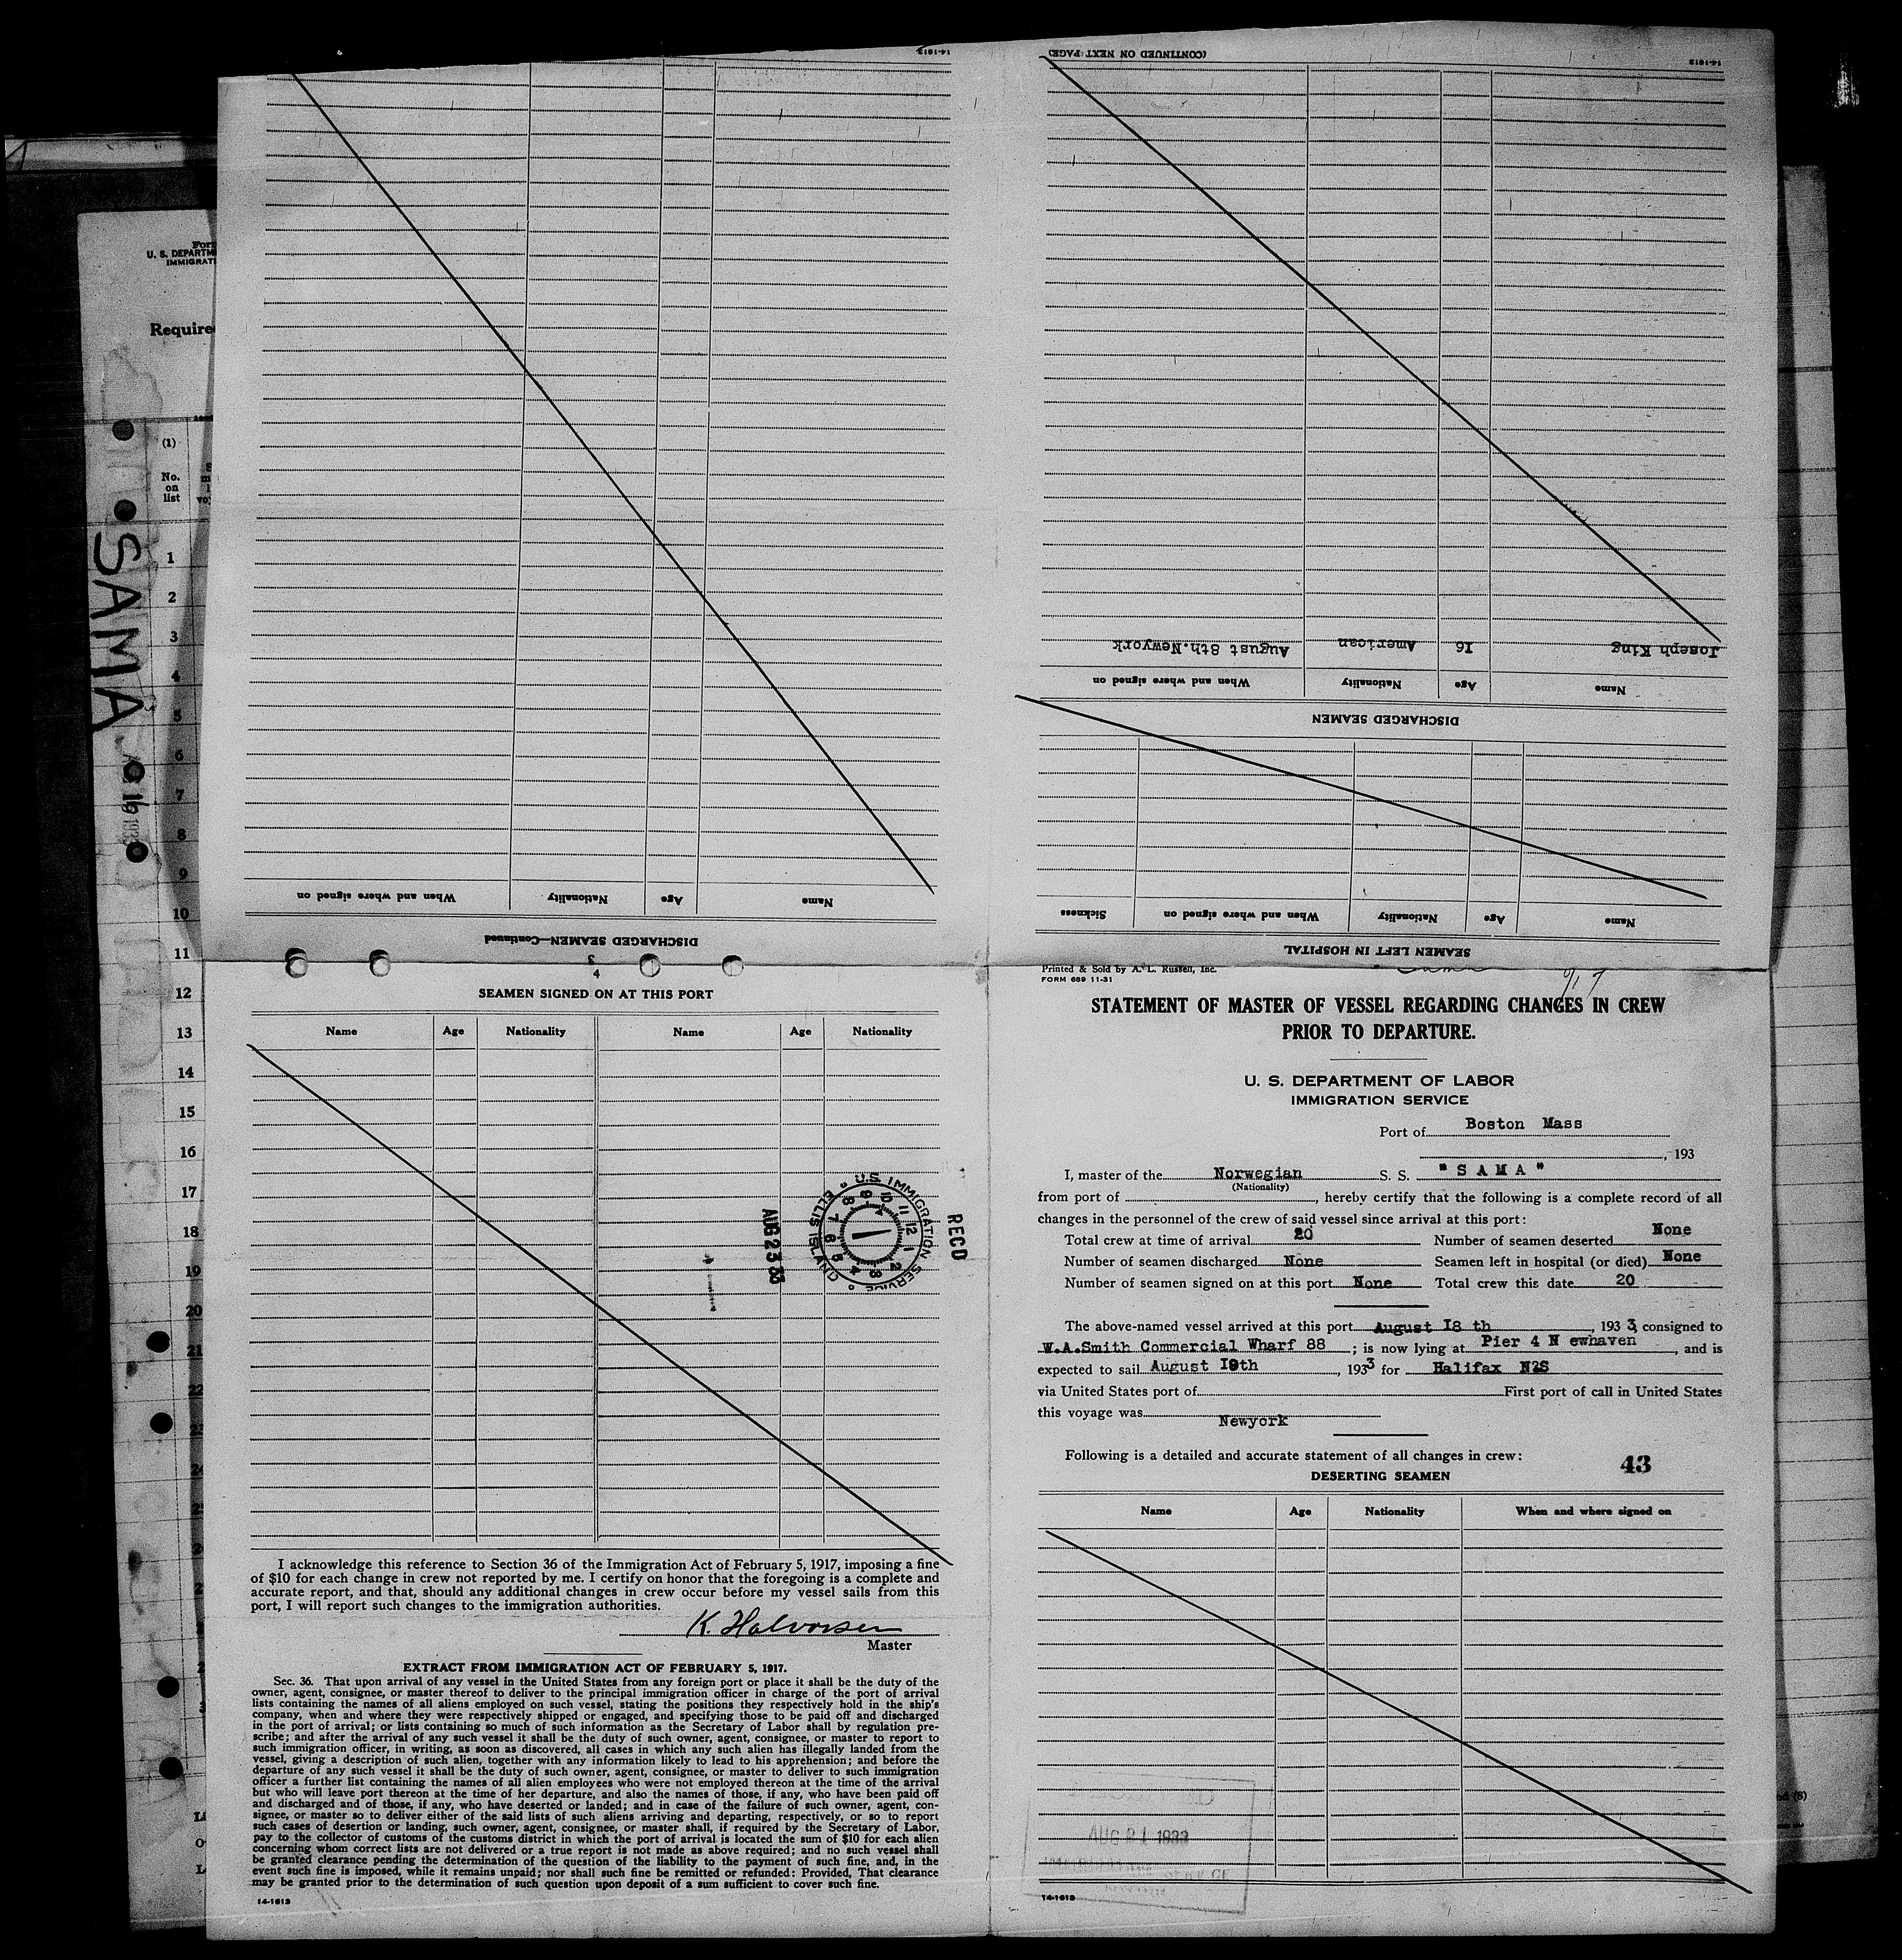 14-1613
(CONTINUED ON NEXT PAGE)
14-1613
Joseph King 16 American August 8th.Newyork
Name Age Nationality When and where signed on
DISCHARGED SEAMEN
Name Age Nationality When and where signed on Sickness
SEAMEN LEFT IN HOSPITAL
Name Age Nationality When and where signed on
DISCHARGED SEAMEN—Continued
3
4
SEAMEN SIGNED ON AT THIS PORT
Name Age Nationality Name Age Nationality
U.S. IMMIGRATION SERVICE ELLIS ISLAND
1 2 3 4 5 6 7 8 9 10 11 12
RECD
AUG 23 33
I acknowledge this reference to Section 36 of the Immigration Act of February 5, 1917, imposing a fine
of $10 for each change in crew not reported by me. I certify on honor that the foregoing is a complete and
accurate report, and that, should any additional changes in crew occur before my vessel sails from this
port, I will report such changes to the immigration authorities.
K. Halvorsen
Master
EXTRACT FROM IMMIGRATION ACT OF FEBRUARY 5, 1917.
Sec. 36. That upon arrival of any vessel in the United States from any foreign port or place it shall be the duty of the
owner, agent, consignee, or master thereof to deliver to the principal immigration officer in charge of the port of arrival
lists containing the names of all aliens employed on such vessel, stating the positions they respectively hold in the ship's
company, when and where they were respectively shipped or engaged, and specifying those to be paid off and discharged
in the port of arrival; or lists containing so much of such information as the Secretary of Labor shall by regulation pre-
scribe; and after the arrival of any such vessel it shall be the duty of such owner, agent, consignee, or master to report to
such immigration officer, in writing, as soon as discovered, all cases in which any such alien has illegally landed from the
vessel, giving a description of such alien, together with any information likely to lead to his apprehension; and before the
departure of any such vessel it shall be the duty of such owner, agent, consignee, or master to deliver to such immigration
officer a further list containing the names of all alien employees who were not employed thereon at the time of the arrival
but who will leave port thereon at the time of her departure, and also the names of those, if any, who have been paid off
and discharged and of those, if any, who have deserted or landed; and in case of the failure of such owner, agent, con-
signee, or master so to deliver either of the said lists of such aliens arriving and departing, respectively, or so to report
such cases of desertion or landing, such owner, agent, consignee, or master shall, if required by the Secretary of Labor,
pay to the collector of customs of the customs district in which the port of arrival is located the sum of $10 for each alien
concerning whom correct lists are not delivered or a true report is not made as above required; and no such vessel shall
be granted clearance pending the determination of the question of the liability to the payment of such fine, and, in the
event such fine is imposed, while it remains unpaid; nor shall such fine be remitted or refunded: Provided, That clearance
may be granted prior to the determination of such question upon deposit of a sum sufficient to cover such fine.
14-1613
Printed & Sold by A. L. Russell, Inc.
FORM 689 11-31
STATEMENT OF MASTER OF VESSEL REGARDING CHANGES IN CREW
PRIOR TO DEPARTURE.
U. S. DEPARTMENT OF LABOR
IMMIGRATION SERVICE
Port of Boston Mass
, 193
I, master of the Norwegian S. S. "SAMA"
(Nationality)
from port of , hereby certify that the following is a complete record of all
changes in the personnel of the crew of said vessel since arrival at this port:
Total crew at time of arrival 20 Number of seamen deserted None
Number of seamen discharged None Seamen left in hospital (or died) None
Number of seamen signed on at this port None Total crew this date 20
The above-named vessel arrived at this port August I8 th , 193 3, consigned to
W.A.Smith Commercial Wharf 88 ; is now lying at Pier 4 N ewhaven , and is
expected to sail August I9th , 1933 for Halifax N2S
via United States port of First port of call in United States
this voyage was Newyork
Following is a detailed and accurate statement of all changes in crew:
43
DESERTING SEAMEN
Name Age Nationality When and where signed on
AUG 21 1933
14-1613
Form
U. S. DEPARTM
IMMIGRATI
Require
(1)
No.
on
list
SAMA
1
2
3
4
5
6
7
8
9
10
11
12
13
14
15
16
17
18
19
20
21
22
23